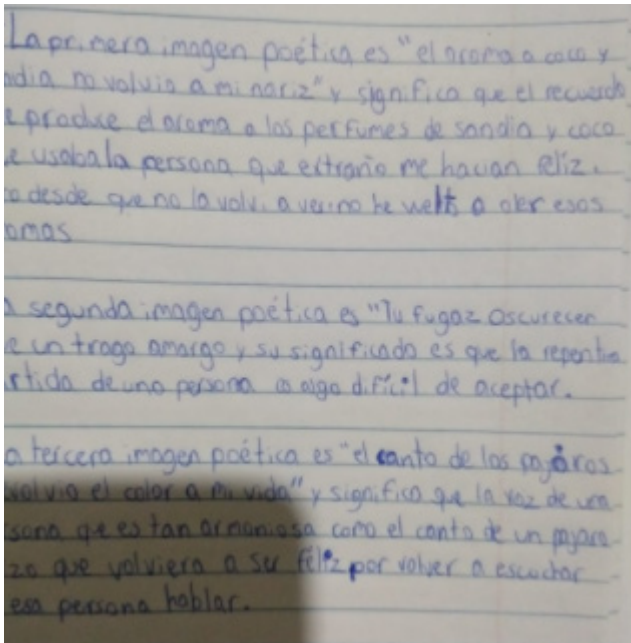 La primera imagen poética es "el aroma a coco y
ndia no volvio a mi nariz" y significa que el recuerdo
e produce el aroma a los perfumes de sandia y coco
e usaba la persona que extraño me hacian feliz.
o desde que no la volvi a ver no he welto a oler esos
omas
a segunda imagen poética es "Tu fugaz oscurecer
e un trago amargo y su significado es que la repentina
rtida de una persona es algo dificil de aceptar.
a tercera imagen poética es "el canto de los pajaros
volvio el color a mi vida" y significa que la voz de una
sona que es tan armoniosa como el canto de un pajaro
zo que volviera a ser feliz por volver a escuchar
esa persona hablar.